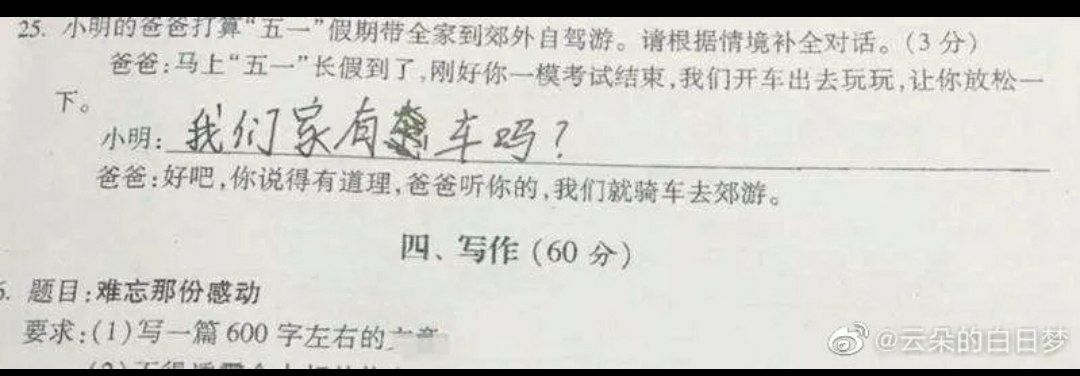 25. 小明的爸爸打算“五一”假期带全家到郊外自驾游。请根据情境补全对话。(3 分)
爸爸:马上“五一”长假到了,刚好你一模考试结束,我们开车出去玩玩,让你放松一
下。
小明:我们家有车吗?
爸爸:好吧,你说得有道理,爸爸听你的,我们就骑车去郊游。
四、写作(60 分)
题目:难忘那份感动
要求:(1)写一篇 600 字左右的
@云朵的白日梦